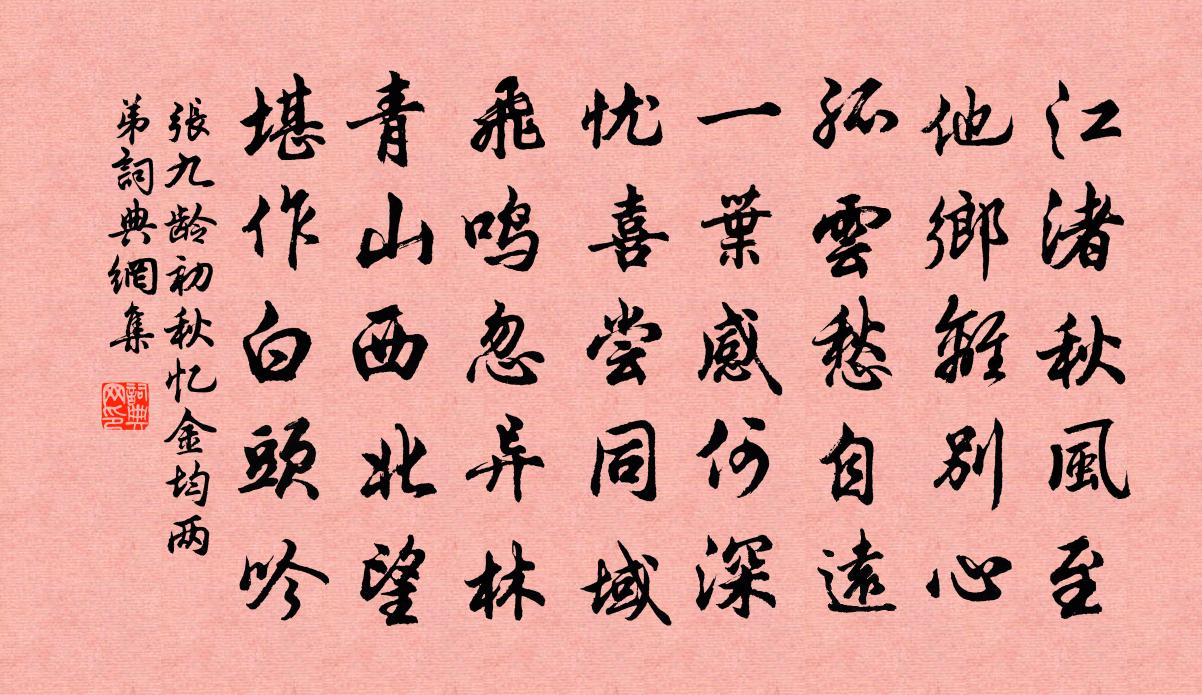 江渚秋風至
他鄉離別心
孤雲愁自遠
一葉感何深
忧喜尝同域
飛鸣忽异林
青山西北望
堪作白頭吟
張九龄初秋忆金均两
弟詞典網集
詞典网印